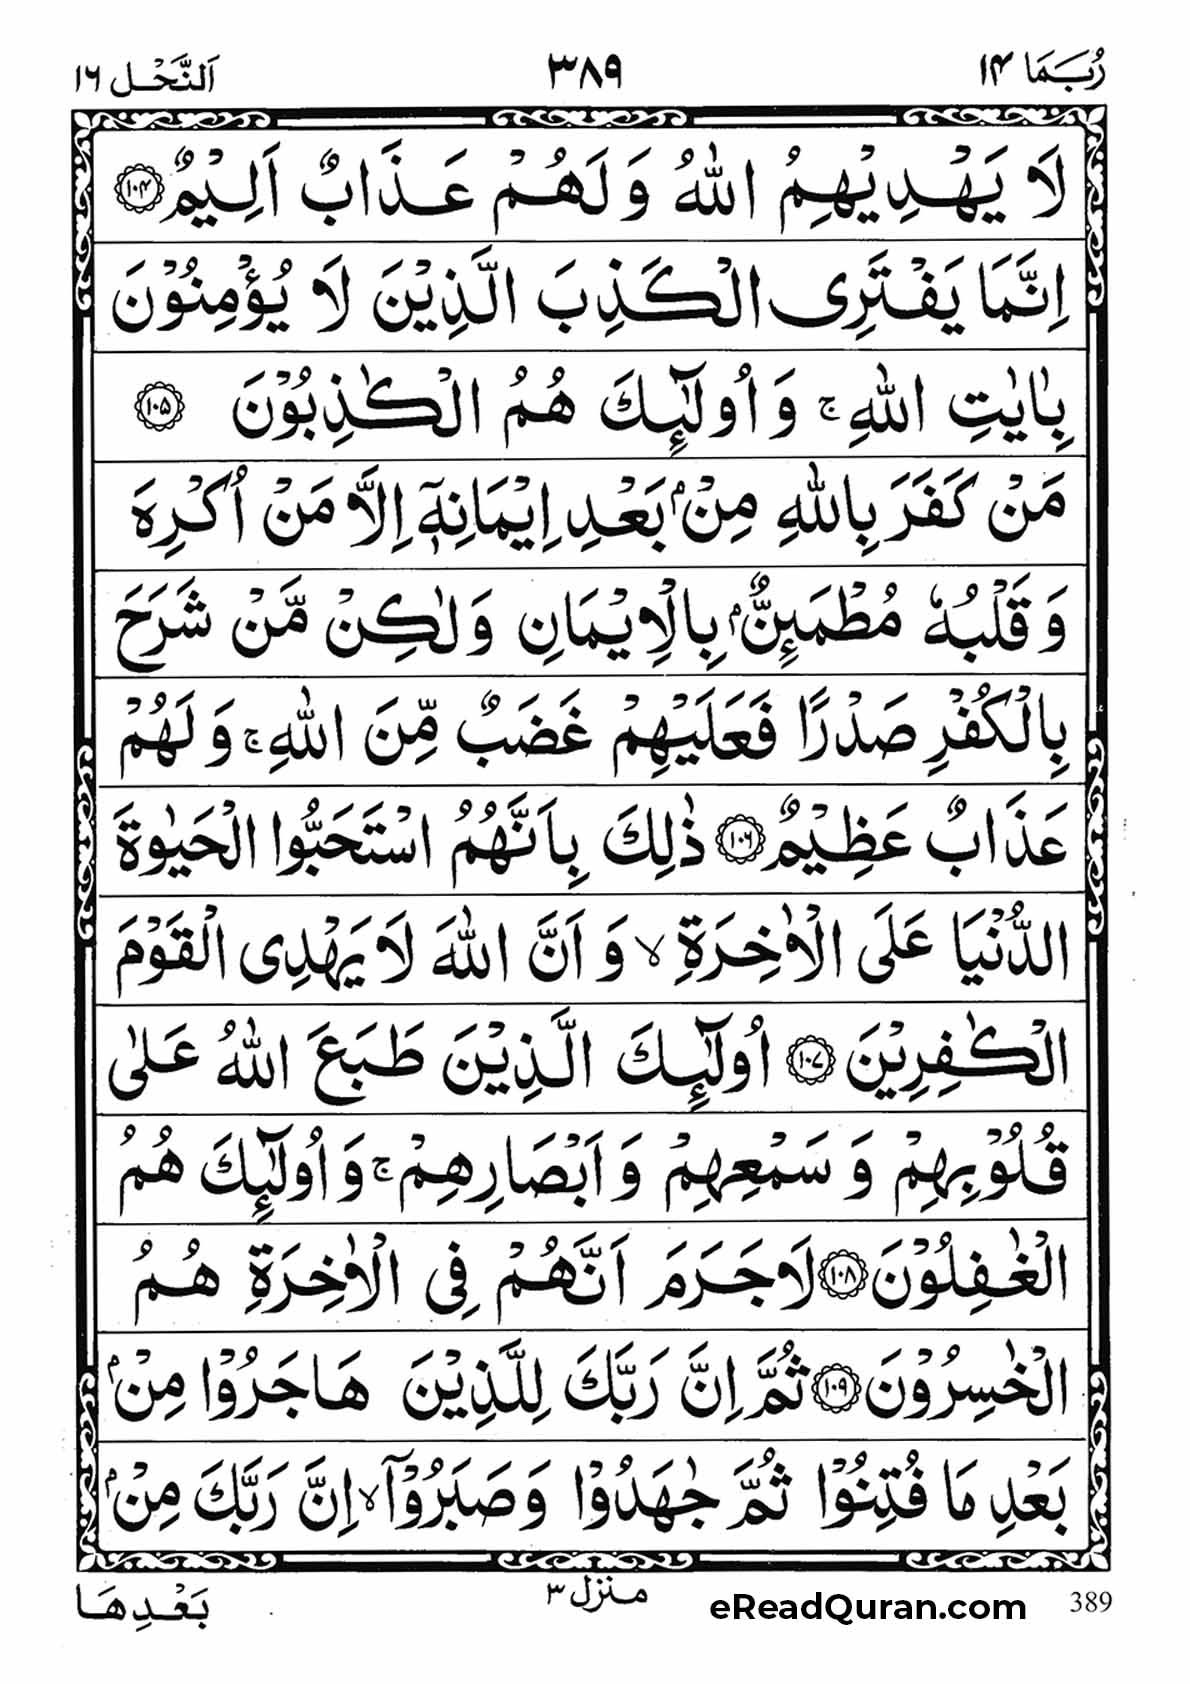 رُبَمَا ١٤
٣٨٩
اَلنَّحْل ١٦
لَا يَهْدِيْهِمُ اللّٰهُ وَ لَهُمْ عَذَابٌ اَلِيْمٌ ﴿۱۰۴﴾
اِنَّمَا يَفْتَرِى الْكَذِبَ الَّذِيْنَ لَا يُؤْمِنُوْنَ
بِاٰيٰتِ اللّٰهِ ۚ وَ اُولٰٓئِكَ هُمُ الْكٰذِبُوْنَ ﴿۱۰۵﴾
مَنْ كَفَرَ بِاللّٰهِ مِنْۢ بَعْدِ اِيْمَانِهٖۤ اِلَّا مَنْ اُكْرِهَ
وَ قَلْبُهٗ مُطْمَئِنٌّۢ بِالْاِيْمَانِ وَ لٰكِنْ مَّنْ شَرَحَ
بِالْكُفْرِ صَدْرًا فَعَلَيْهِمْ غَضَبٌ مِّنَ اللّٰهِ ۚ وَ لَهُمْ
عَذَابٌ عَظِيْمٌ ﴿۱۰۶﴾ ذٰلِكَ بِاَنَّهُمُ اسْتَحَبُّوا الْحَيٰوةَ
الدُّنْيَا عَلَى الْاٰخِرَةِ ۙ وَ اَنَّ اللّٰهَ لَا يَهْدِى الْقَوْمَ
الْكٰفِرِيْنَ ﴿۱۰۷﴾ اُولٰٓئِكَ الَّذِيْنَ طَبَعَ اللّٰهُ عَلٰى
قُلُوْبِهِمْ وَ سَمْعِهِمْ وَ اَبْصَارِهِمْ ۚ وَ اُولٰٓئِكَ هُمُ
الْغٰفِلُوْنَ ﴿۱۰۸﴾ لَا جَرَمَ اَنَّهُمْ فِى الْاٰخِرَةِ هُمُ
الْخٰسِرُوْنَ ﴿۱۰۹﴾ ثُمَّ اِنَّ رَبَّكَ لِلَّذِيْنَ هَاجَرُوْا مِنْۢ
بَعْدِ مَا فُتِنُوْا ثُمَّ جٰهَدُوْا وَ صَبَرُوْۤا ۙ اِنَّ رَبَّكَ مِنْۢ
بَعْدِهَا
منزل ٣
eReadQuran.com
389